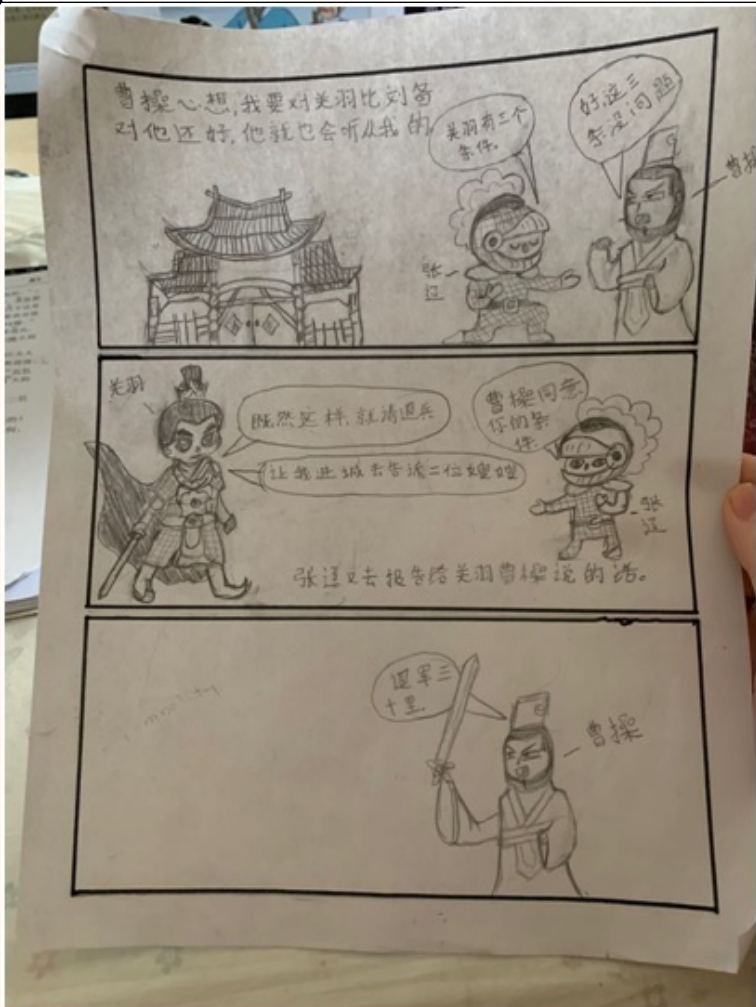 曹操心想,我要对关羽比刘备
对他还好,他就也会听从我的
关羽有三个
条件。
好这三
条没问题
曹操
张
辽
关羽
既然这样,就请退兵
让我进城去告诉二位嫂嫂
曹操同意
你的条
件
张
辽
张辽又去报告给关羽曹操说的话。
退军三
十里
曹操